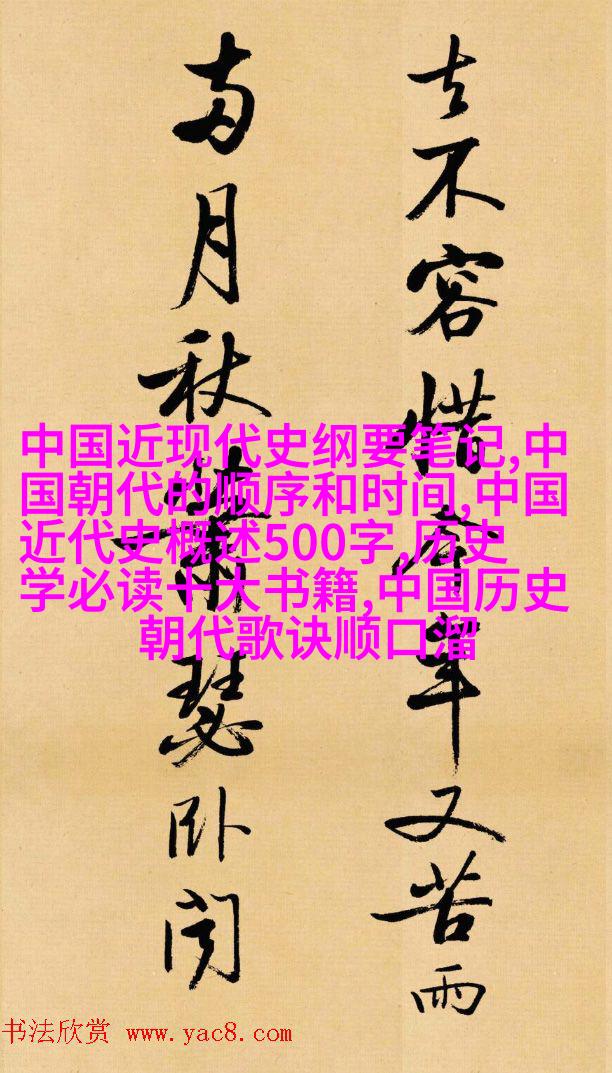 去不容惜今年又苦雨
兩月秋蕭瑟卧聞
中国近现代史纲要笔记,中
国朝代的顺序和时间,中国
近代史概述500字,历史
学必读十大书籍,中国历史
朝代歌诀顺口溜
书法欣赏 www.yac8.com